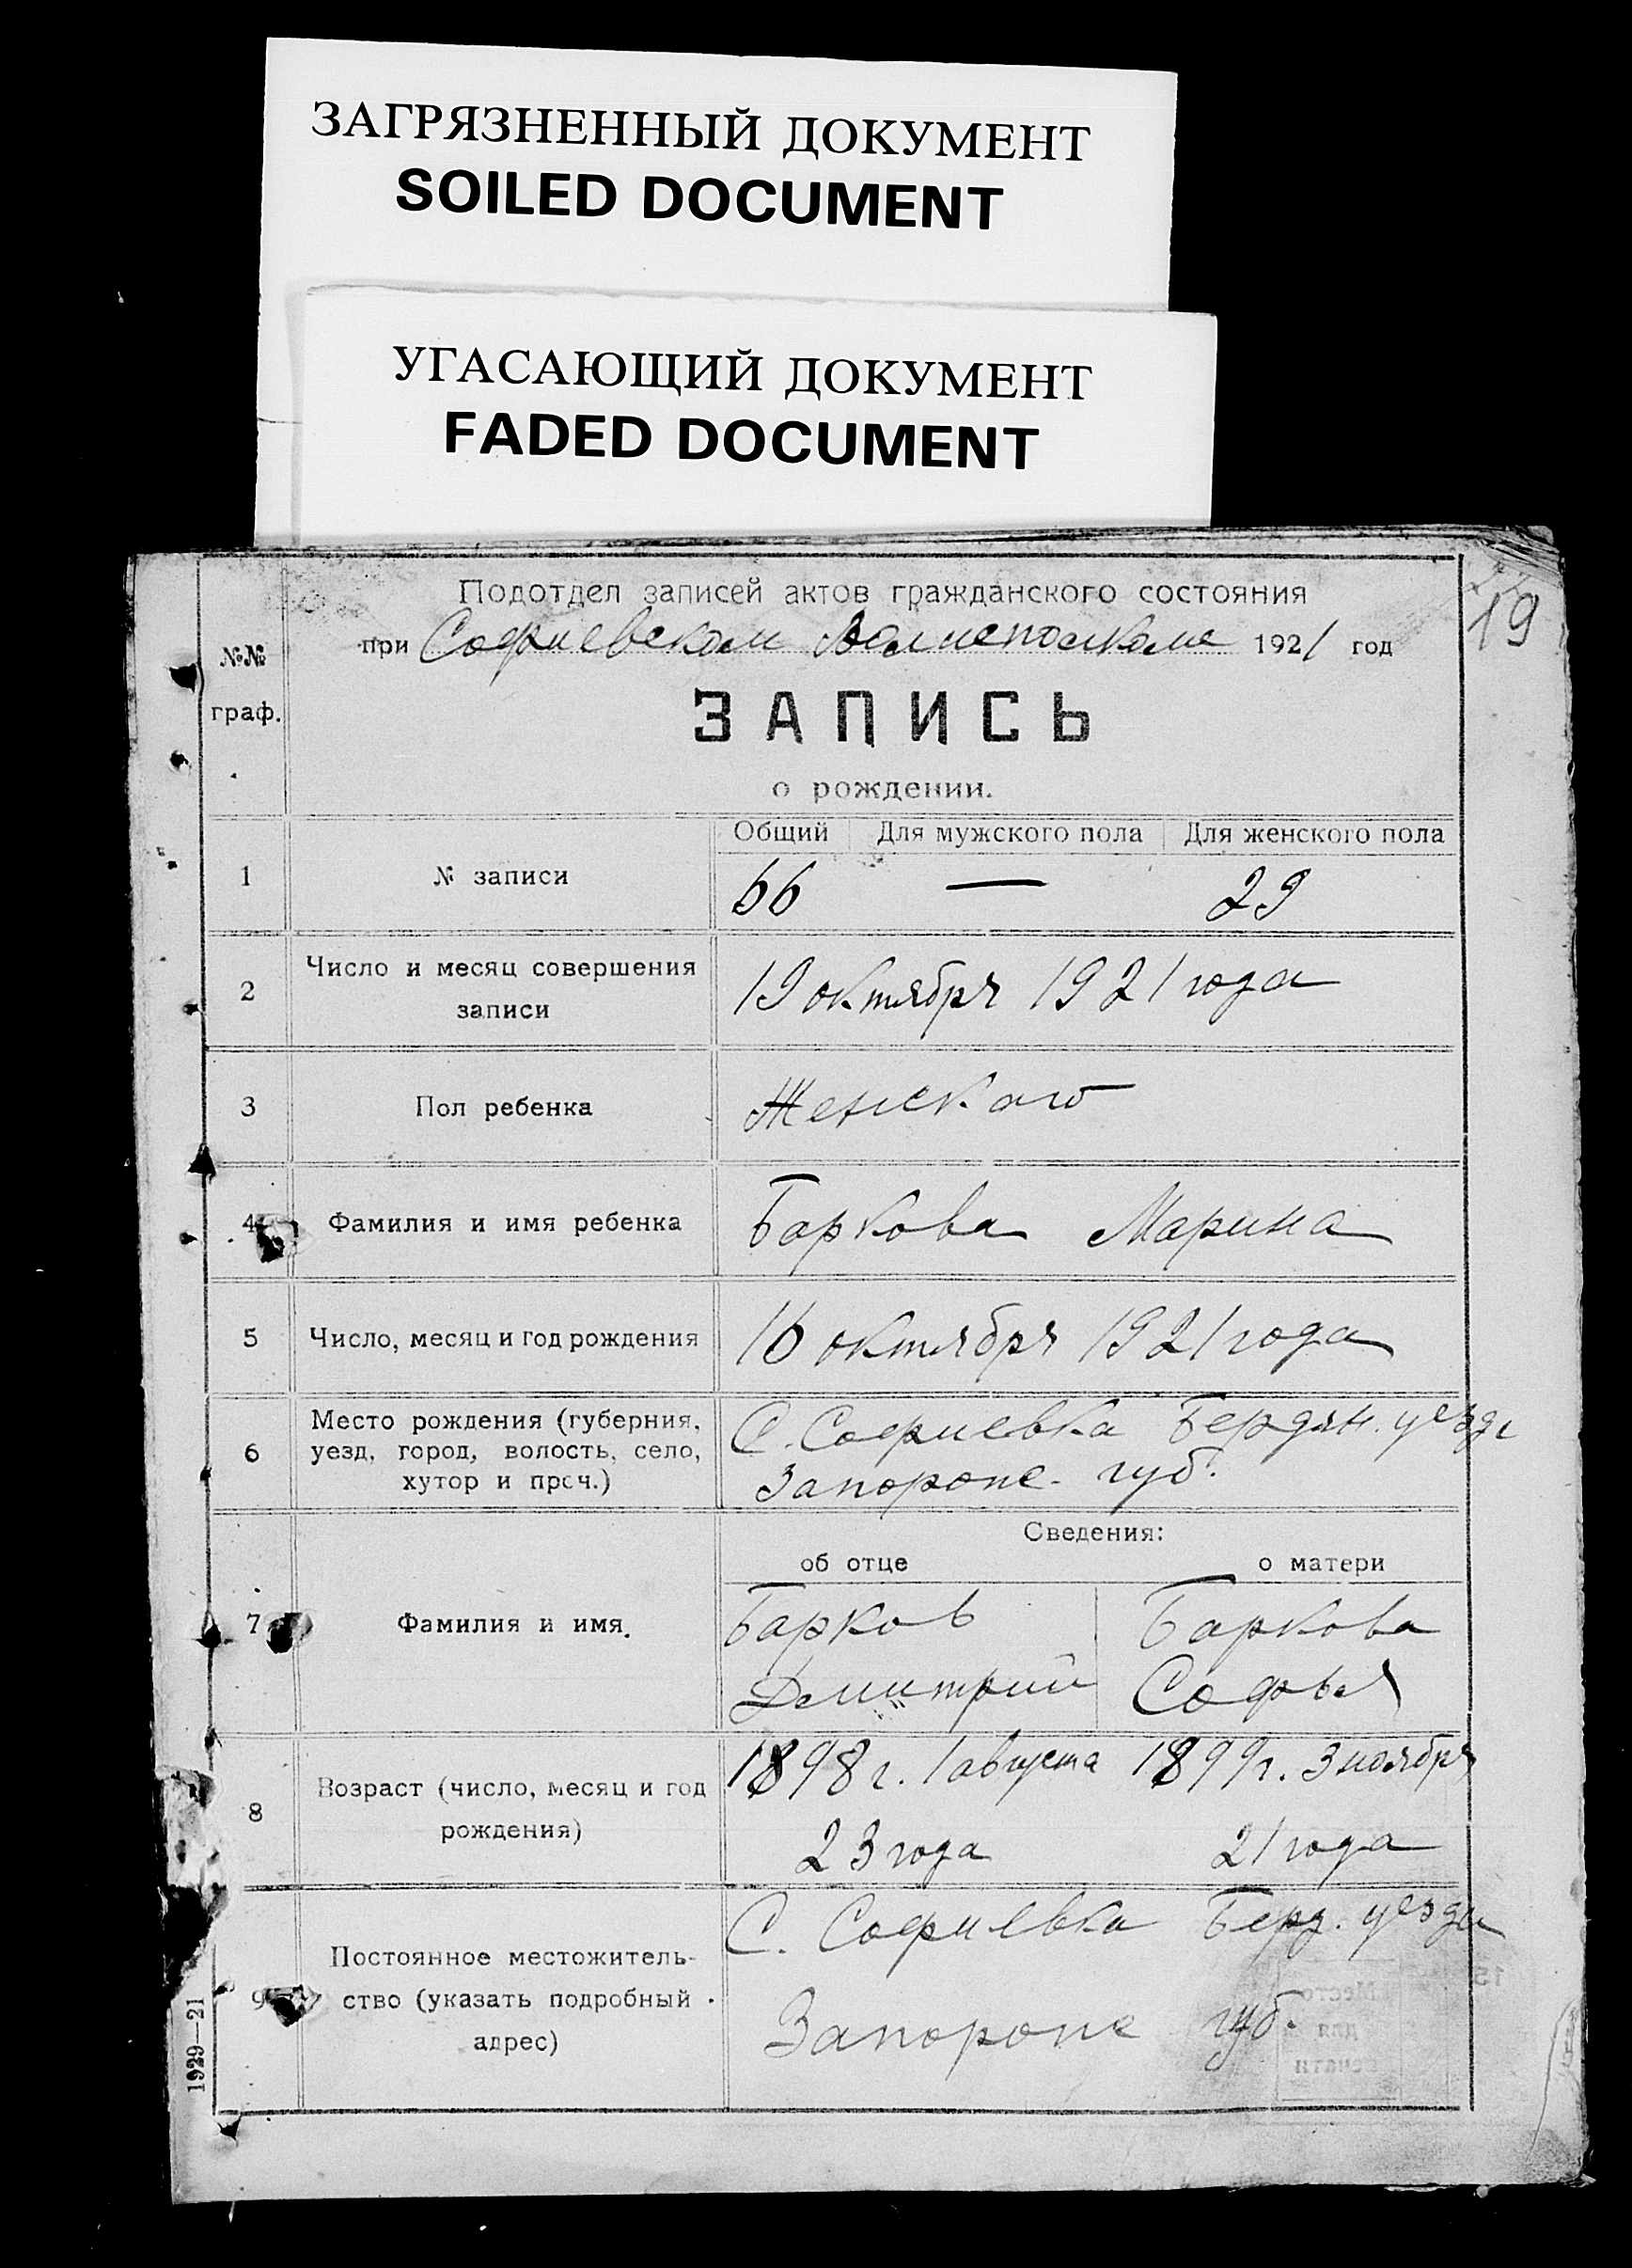 ЗАГРЯЗНЕННЫЙ ДОКУМЕНТ
SOILED DOCUMENT
УГАСАЮЩИЙ ДОКУМЕНТ
FADED DOCUMENT
19
№№ граф.
Подотдел записей актов гражданского состояния
при Софиевском Волисполкоме 1921 год
ЗАПИСЬ
о рождении.
Общий Для мужского пола Для женского пола
1 № записи 66 — 29
2 Число и месяц совершения записи 19 октября 1921 года
3 Пол ребенка Женскаго
4 Фамилия и имя ребенка Баркова Марина
5 Число, месяц и год рождения 16 октября 1921 года
6 Место рождения (губерния, уезд, город, волость, село, хутор и проч.) С. Софиевка Бердян. уезда
Запорож. губ.
Сведения:
об отце о матери
7 Фамилия и имя. Барков Баркова
Дмитрий Софья
8 Возраст (число, месяц и год рождения) 1898 г. 1 августа 1899 г. 3 ноября
23 года 21 года
9 Постоянное местожительство (указать подробный адрес) С. Софиевка Берд. уезда
Запорож губ.
Место
для
печати
15
1929—21